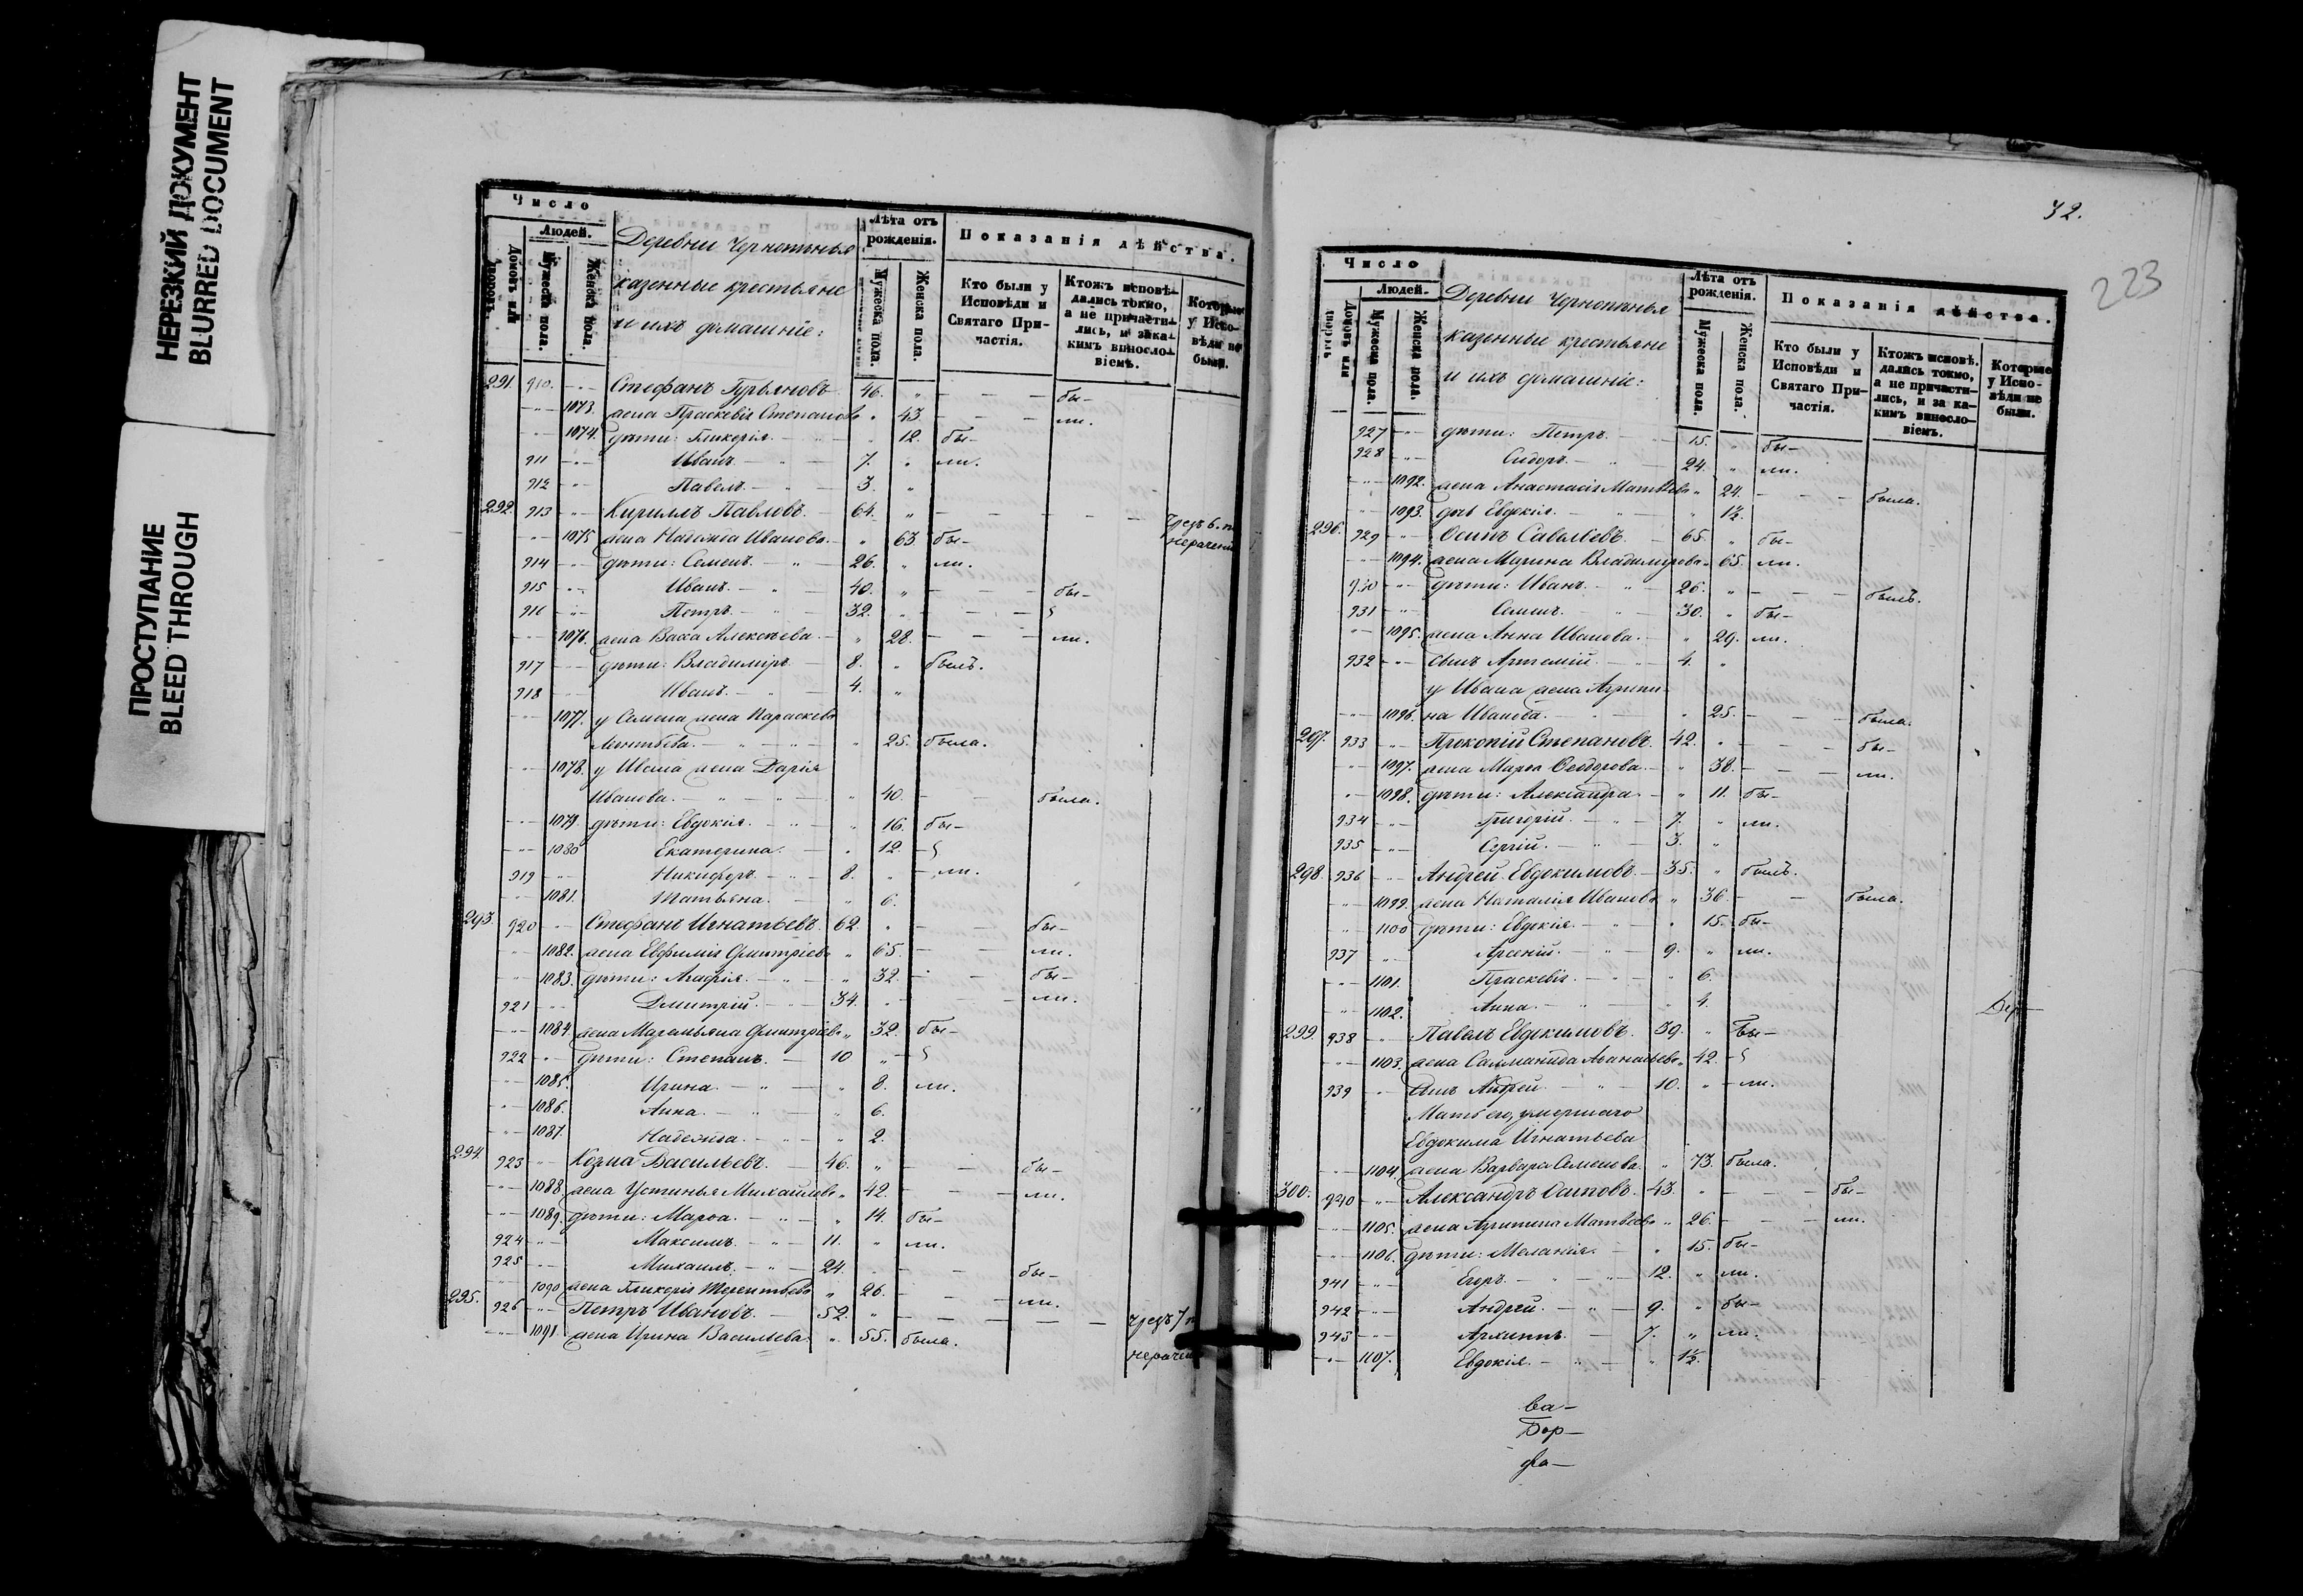 НЕРЕЗКИЙ ДОКУМЕНТ
BLURRED DOCUMENT
ПРОСТУПАНИЕ
BLEED THROUGH
Число
Людей.
Домовъ или дворовъ.
Мужеска пола.
Женска пола.
Деревни
казенные крестьяне
и ихъ домашніе:
Лѣта отъ рожденія.
Мужеска пола.
Женска пола.
Показанія дѣйства.
Кто были у Исповѣди и Святаго Причастія.
Ктожъ исповѣдались токмо, а не причастились, и за какимъ винословіемъ.
Которые у Исповѣди не были.
291. 910. Стефанъ Гурьяновъ 46. бы-
1073. жена Праскевія Степанова 43. ли.
1074. дѣти: Гликерія. 12. бы-
911 Иванъ. 7. ли.
912 Павелъ. 3.
292. 913 Кириллъ Павловъ. 64.
1075 жена Надежда Иванова. 63 бы-
914 дѣти: Семенъ. 26. ли.
915 Иванъ. 40. бы-
916 Петръ. 32.
1076. жена Васса Алексѣева. 28. ли.
917 дѣти: Владиміръ 8. былъ.
918 Иванъ. 4.
1077. у Семена жена Параскева
25. была.
1078. у Ивана жена Дарія
Иванова. 40. была.
1079. дѣти: Евдокія. 16. бы-
1080 Екатерина. 12.
919 Никифоръ. 8. ли.
1081. Татьяна. 6.
293. 920 Стефанъ Игнатьевъ. 62. бы-
1082. жена Евфимія Дмитріева 65. ли.
1083. дѣти: Агафія. 32. бы-
921 Дмитрій. 34. ли.
1084. жена Маремьяна Дмитріева 32. бы-
922 дѣти: Степанъ. 10
1085. Ирина. 8. ли.
1086. Анна. 6.
1087. Надежда. 2.
294. 923 Козма Васильевъ. 46. бы-
1088. жена Устинья Михайлова 42. ли.
1089. дѣти: Марѳа. 14. бы-
924 Максимъ. 11. ли.
925 Михаилъ. 24. бы-
1090 жена Гликерія Терентьева 26. ли.
295. 926 Петръ Ивановъ. 52.
1091. жена Ирина Васильева. 55. была.
32.
223
Число
Людей.
Домовъ или
Мужеска пола.
Женска пола.
Деревни
казенные крестьяне
и ихъ домашніе:
Лѣта отъ рожденія.
Мужеска пола.
Женска пола.
Показанія дѣйства.
Кто были у Исповѣди и Святаго Причастія.
Ктожъ исповѣдались токмо, а не причастились, и за какимъ винословіемъ.
Которые у Исповѣди не были.
927 дѣти: Петръ. 15. бы-
928 Сидоръ. 24. ли.
1092. жена Анастасія Матвѣева 24. была.
1093. дочь Евдокія. 1½.
296. 929 Осипъ Савельевъ. 65. бы-
1094. жена Марина Владимірова 65. ли.
930 дѣти: Иванъ. 26. былъ.
931 Семенъ. 30. бы-
1095. жена Анна Иванова. 29. ли.
932 сынъ Артемій. 4.
у Ивана жена Агрипи-
1096. на Иванова. 25. была.
297. 933 Прокопій Степановъ. 42. бы-
1097. жена Марѳа Ѳеодорова. 38. ли.
1098. дѣти: Александра. 11. бы-
934 Григорій. 7. ли.
935 Сергій. 3.
298. 936 Андрей Евдокимовъ. 35. былъ.
1099. жена Наталія Иванова 36. была.
1100 дѣти: Евдокія. 15. бы-
937 Арсеній. 9. ли.
1101. Праскевія. 6.
1102. Анна. 4.
299. 938 Павелъ Евдокимовъ. 39. бы-
1103. жена Аѳанасьева 42.
939 сынъ Андрей. 10. ли.
Мать его, умершаго
Евдокима Игнатьева
1104. жена Варвара Семенова. 73. была.
300. 940 Александръ Осиповъ. 43. бы-
1105. жена Агрипина Матвѣева 26. ли.
1106. дѣти: Меланія. 15. бы-
941 Егоръ. 12. ли.
942 Андрей. 9. бы-
943 Архиппъ. 7. ли.
1107. Евдокія. 1½.
ва-
Бор-